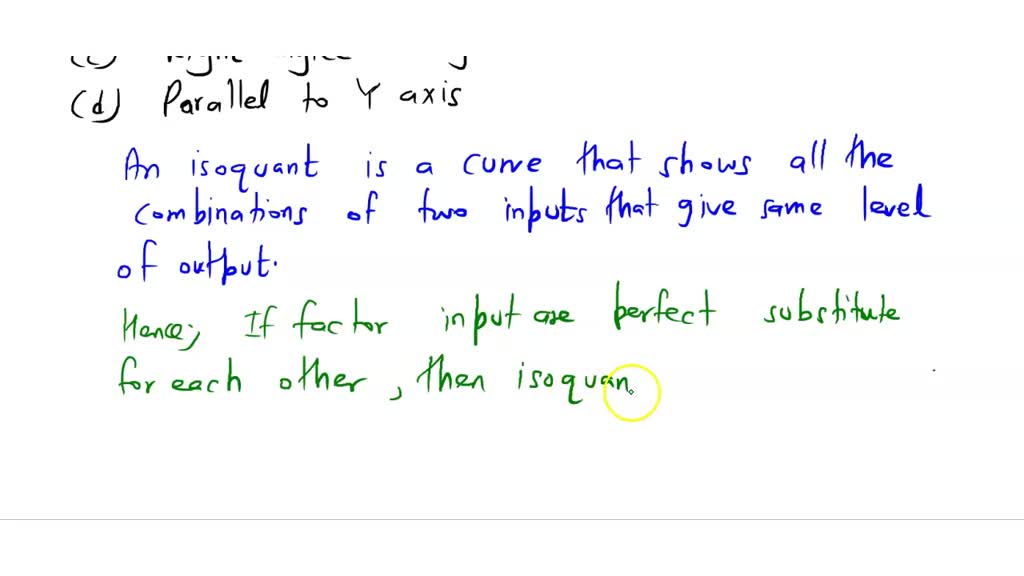 (d) Parallel to Y axis
An isoquant is a curve that shows all the
combinations of two inputs that give same level
of output.
Hence; If factor input are perfect substitute
for each other, then isoquan